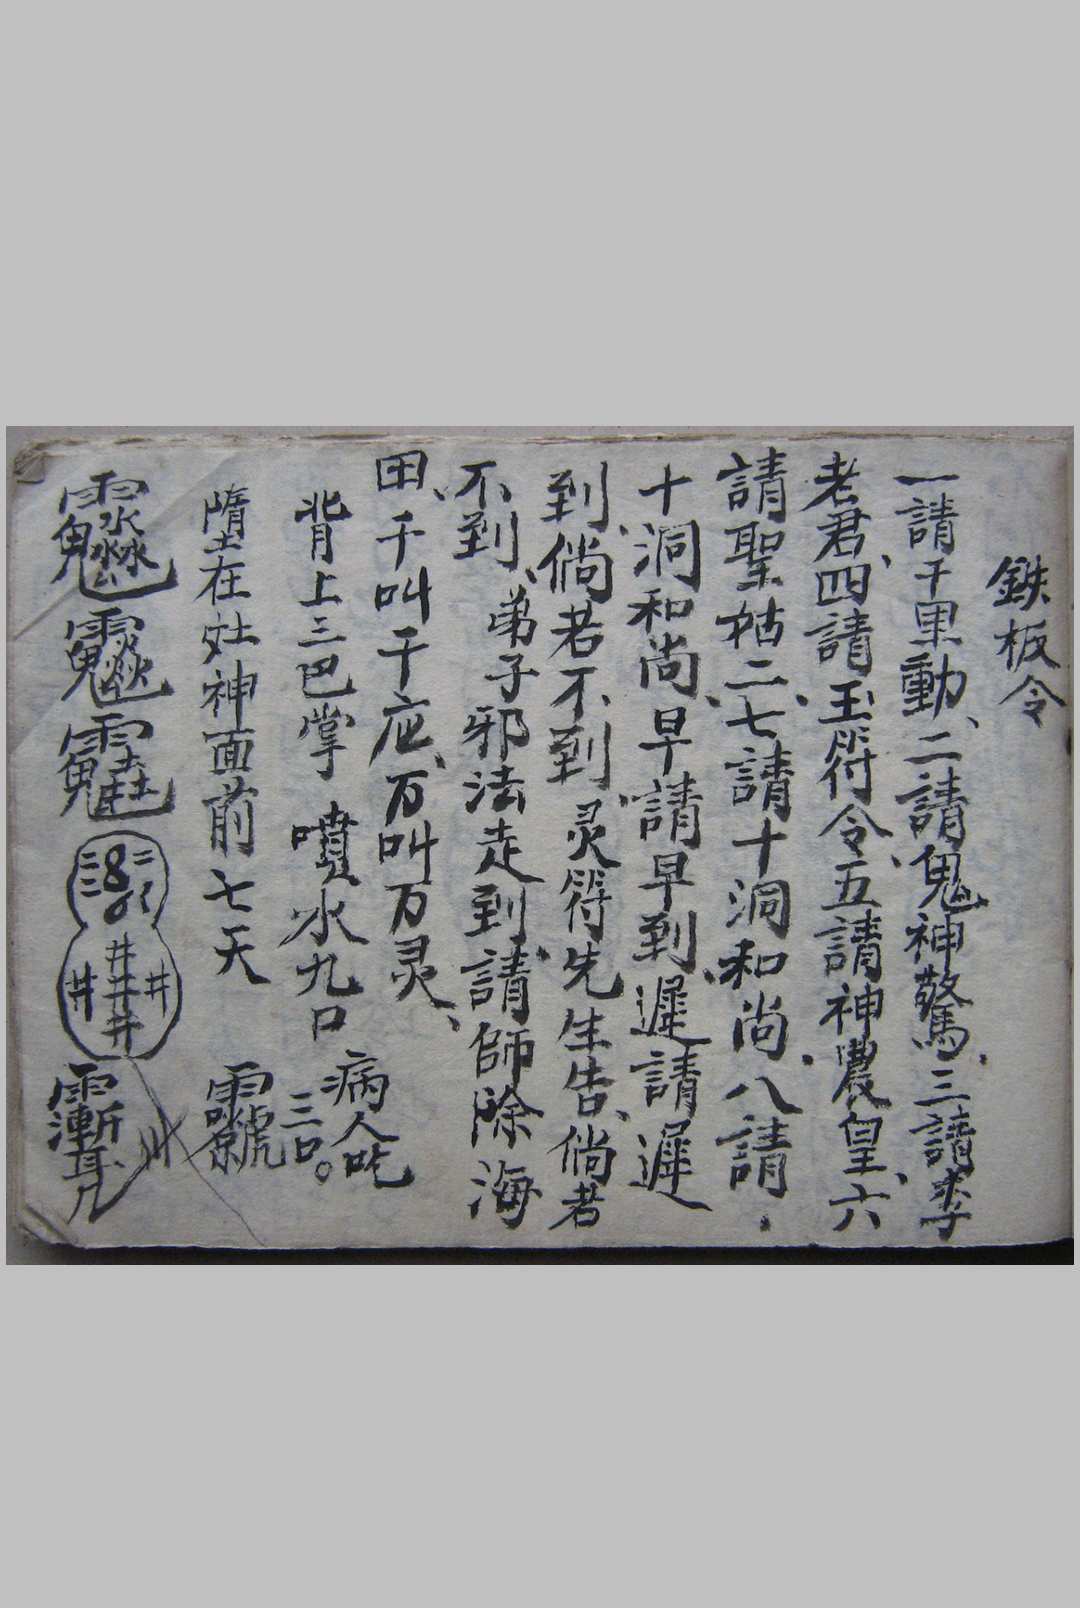 鉄板令
一請千里動、二請鬼神驚、三請李
老君、四請玉符令、五請神農皇、六
請聖姑二、七請十洞和尚、八請
十洞和尚、早請早到、遲請遲
到、倘若不到灵符先生告、倘若
不到、弟子邪法走到、請師除海
田、千叫千应、万叫万灵、
背上三巴掌 噴水九口 病人吃三口。
墮在灶神面前七天